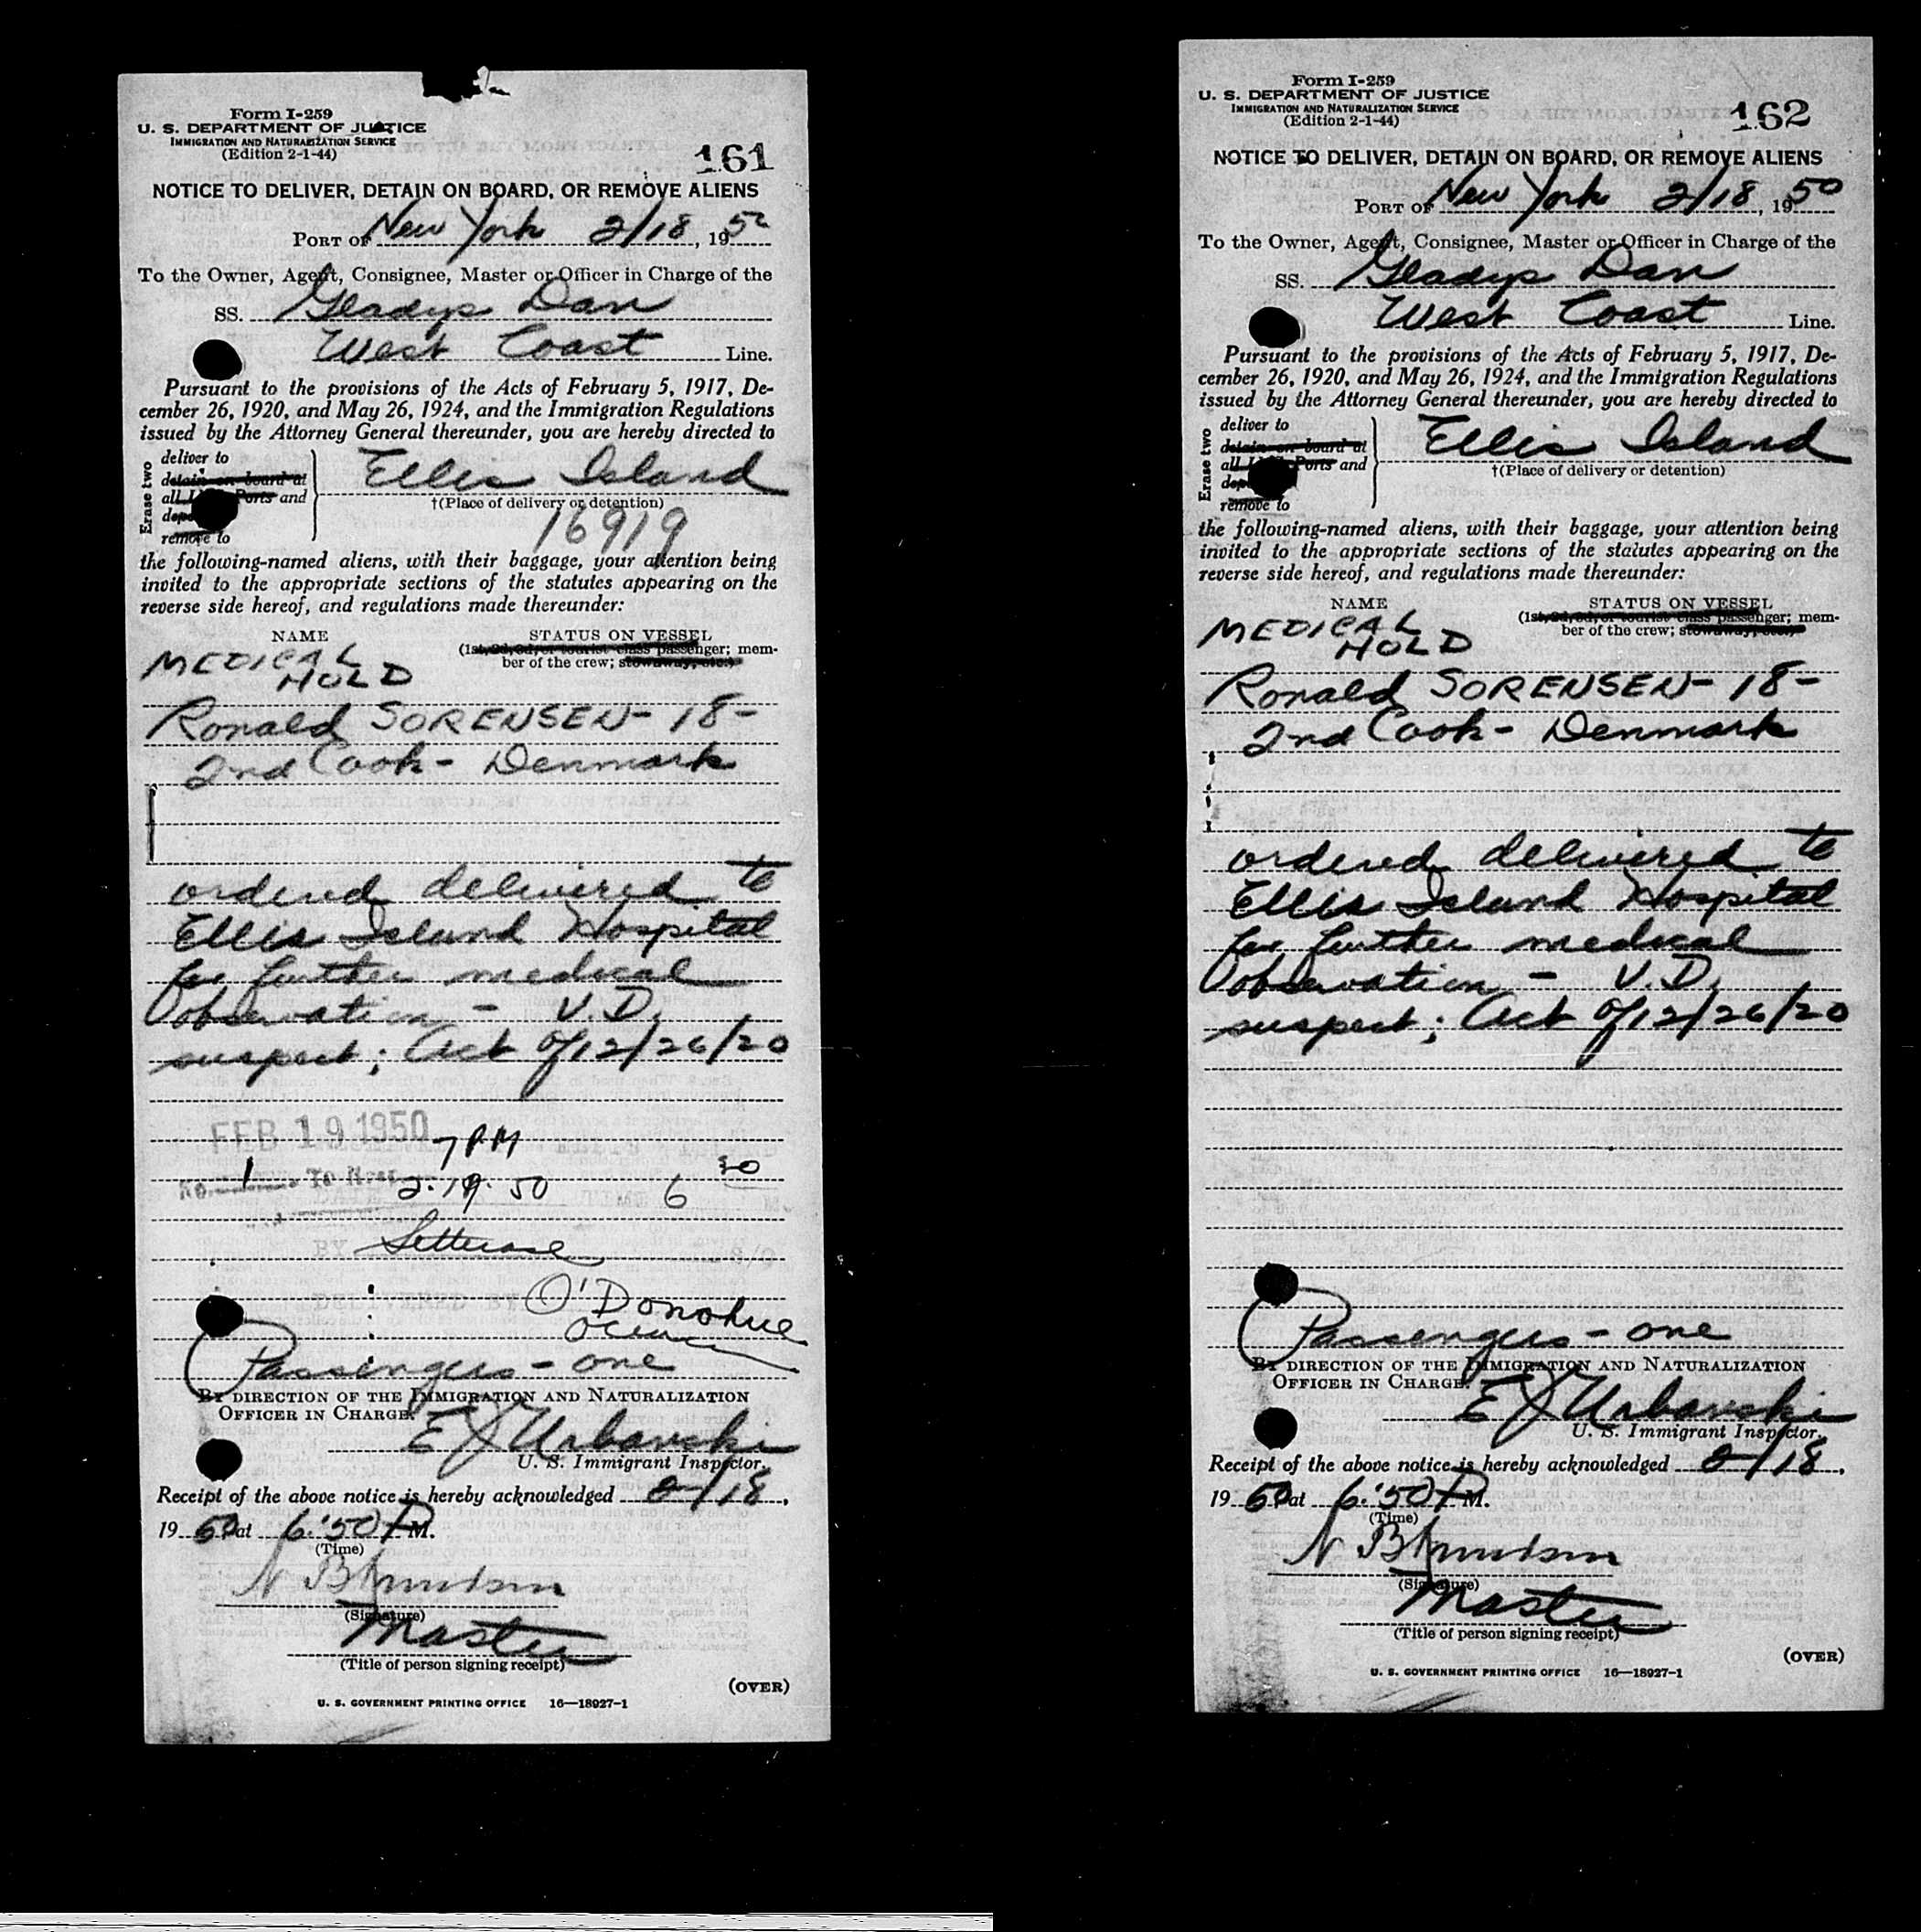 Form I-259
U. S. DEPARTMENT OF JUSTICE
IMMIGRATION AND NATURALIZATION SERVICE
(Edition 2-1-44)
161
NOTICE TO DELIVER, DETAIN ON BOARD, OR REMOVE ALIENS
PORT OF New York 2/18, 1950
To the Owner, Agent, Consignee, Master or Officer in Charge of the
SS. Gladys Dan
West Coast Line.
Pursuant to the provisions of the Acts of February 5, 1917, De-
cember 26, 1920, and May 26, 1924, and the Immigration Regulations
issued by the Attorney General thereunder, you are hereby directed to
Erase two
deliver to
detain on board at
all Ports and
remove to
Ellis Island
†(Place of delivery or detention)
16919
the following-named aliens, with their baggage, your attention being
invited to the appropriate sections of the statutes appearing on the
reverse side hereof, and regulations made thereunder:
NAME STATUS ON VESSEL
(1st, 2d, 3d, or tourist class passenger; mem-
ber of the crew; stowaway, etc.)
MEDICAL
HOLD
Ronald SORENSEN - 18 -
2nd Cook - Denmark
ordered delivered to
Ellis Island Hospital
for further medical
observation - V.D.
suspect; Act of 12/26/20
FEB 19 1950 7 PM
No. 1 To 2.19.50 6 30
BY
O'Donohue
Passengers - one
BY DIRECTION OF THE IMMIGRATION AND NATURALIZATION
OFFICER IN CHARGE.
E J Urbanski
U. S. Immigrant Inspector.
Receipt of the above notice is hereby acknowledged 2/18,
1950 at 6:50 P M.
(Time)
N B Knudsen
(Signature)
Master
(Title of person signing receipt)
(OVER)
U. S. GOVERNMENT PRINTING OFFICE 16—18927-1
Form I-259
U. S. DEPARTMENT OF JUSTICE
IMMIGRATION AND NATURALIZATION SERVICE
(Edition 2-1-44)
162
NOTICE TO DELIVER, DETAIN ON BOARD, OR REMOVE ALIENS
PORT OF New York 2/18, 1950
To the Owner, Agent, Consignee, Master or Officer in Charge of the
SS. Gladys Dan
West Coast Line.
Pursuant to the provisions of the Acts of February 5, 1917, De-
cember 26, 1920, and May 26, 1924, and the Immigration Regulations
issued by the Attorney General thereunder, you are hereby directed to
Erase two
deliver to
detain on board at
all Ports and
remove to
Ellis Island
†(Place of delivery or detention)
the following-named aliens, with their baggage, your attention being
invited to the appropriate sections of the statutes appearing on the
reverse side hereof, and regulations made thereunder:
NAME STATUS ON VESSEL
(1st, 2d, 3d, or tourist class passenger; mem-
ber of the crew; stowaway, etc.)
MEDICAL
HOLD
Ronald SORENSEN - 18 -
2nd Cook - Denmark
ordered delivered to
Ellis Island Hospital
for further medical
observation - V.D.
suspect; Act of 12/26/20
Passengers - one
BY DIRECTION OF THE IMMIGRATION AND NATURALIZATION
OFFICER IN CHARGE.
E J Urbanski
U. S. Immigrant Inspector.
Receipt of the above notice is hereby acknowledged 2/18,
1950 at 6:50 P M.
(Time)
N B Knudsen
(Signature)
Master
(Title of person signing receipt)
(OVER)
U. S. GOVERNMENT PRINTING OFFICE 16—18927-1